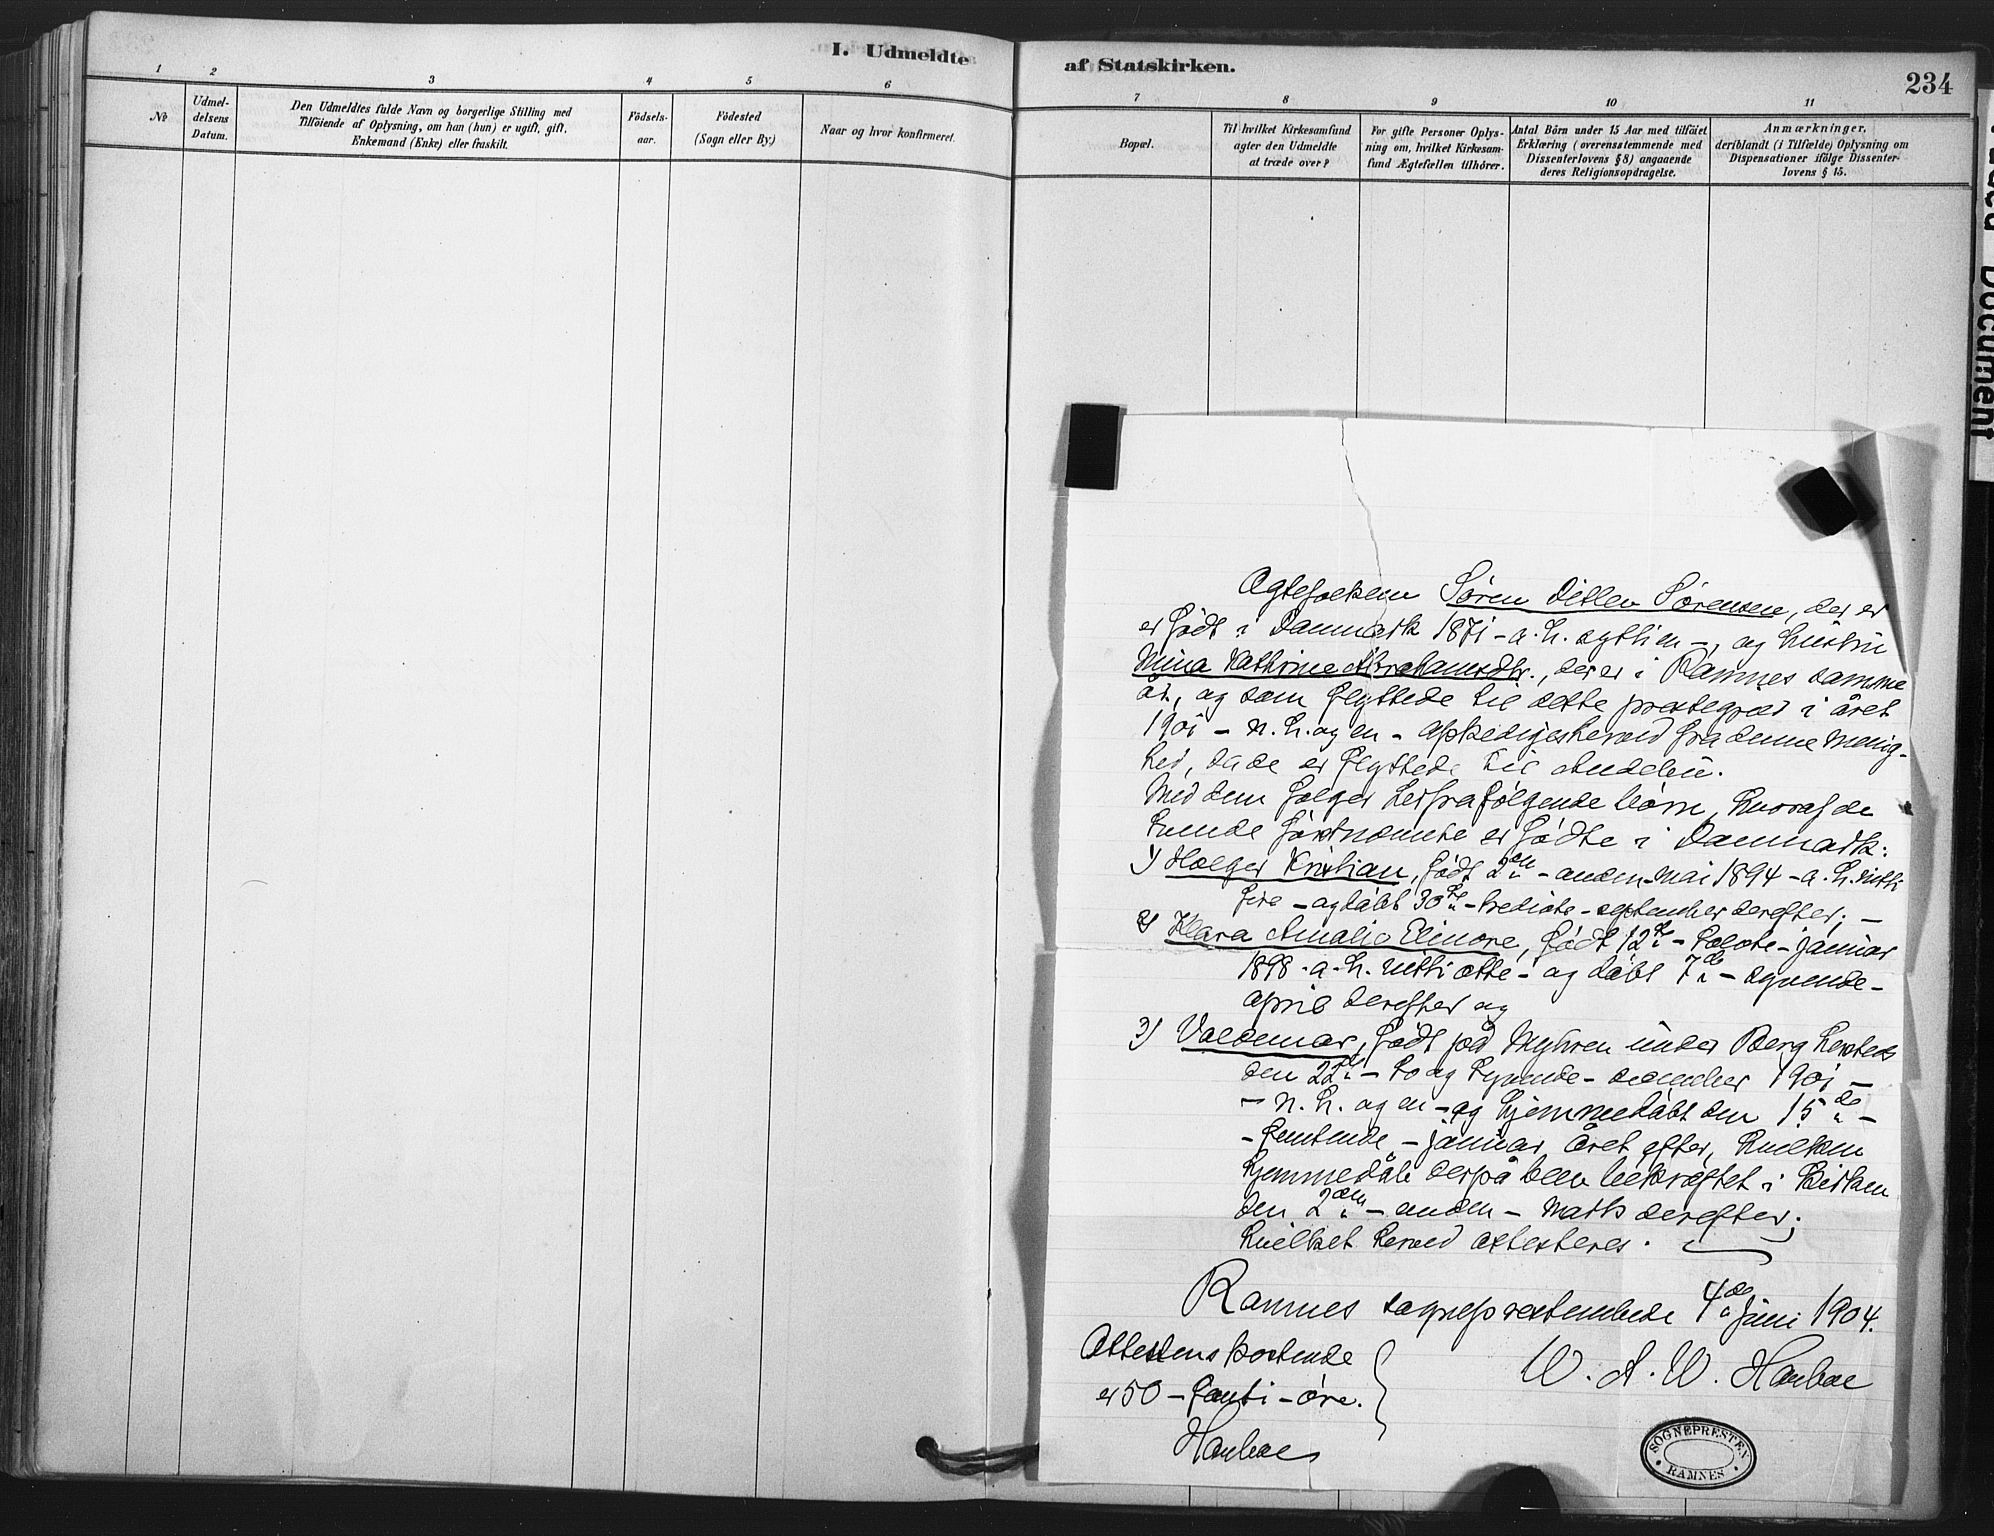 I. Udmeldte
af Statskirken.
234
1 2 3 4 5 6
7 8 9 10 11
No
Udmel-
delsens
Datum.
Den Udmeldtes fulde Navn og borgerlige Stilling med
Tilföiende af Oplysning, om han (hun) er ugift, gift,
Enkemand (Enke) eller fraskilt.
Födsels-
aar.
Födested
(Sogn eller By.)
Naar og hvor konfirmeret.
Bopæl.
Til hvilket Kirkesamfund
agter den Udmeldte
at træde over?
For gifte Personer Oplys-
ning om, hvilket Kirkesam-
fund Ægtefællen tilhörer.
Antal Börn under 15 Aar med tilföiet
Erklæring (overensstemmende med
Dissenterlovens § 8) angaaende
deres Religionsopdragelse.
Anmærkninger,
deriblandt (i Tilfælde) Oplysning om
Dispensationer ifölge Dissenter-
lovens § 15.
Document
Ægtefolkene Søren Ditlev Sørensen, der er
er født i Danmark 1871 - a. h. sytti en -, og hustru
Mina Kathrine Abrahamsdtr., der er i Ramnes samme
år, og som flyttede til dette prestegjæld i året
1901 - n. h. og en - afskediges herved fra denne menig-
hed, da de er flyttede til
Med dem følger herfra følgende børn, hvoraf de
tvende førstnævnte er fødte i Danmark:
1) Holger Kristian, født 2den - anden - mai 1894 - a. h. nitti
fire - og døbt 30te - trediote - september derefter; -
2) Klara Amalie Elinore, født 12te - tolvte - januar
1898 - a. h. nitti otte - og døbt 7de - syvende -
april derefter og
3) Valdemar, født på Myhren under Berg hersteds
den 22de - to og tyvende - december 1901 -
- n. h. og en - og hjemmedøbt den 15de -
- femtende - januar Året efter, hvilken
hjemmedåb derpå blev bekræftet i kirken
den 2den - anden - mars derefter;
hvilket herved attesteres.
Ramnes sogneprestembede 4de juni 1904.
W. A. W. Hauboe
Attestens kostende
er 50 - femti - øre.
Hauboe
SOGNEPRESTEN
RAMNES